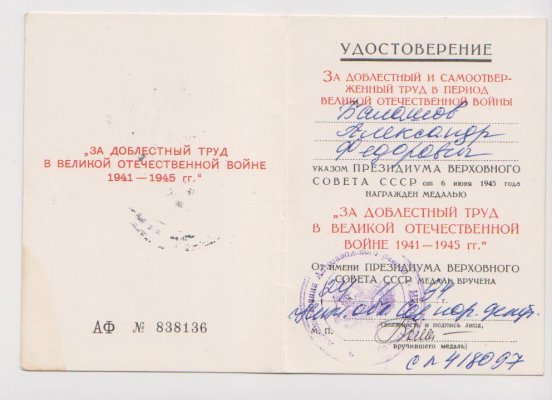 „ЗА ДОБЛЕСТНЫЙ ТРУД
В ВЕЛИКОЙ ОТЕЧЕСТВЕННОЙ ВОЙНЕ
1941—1945 гг.“
АФ № 838136
УДОСТОВЕРЕНИЕ
ЗА ДОБЛЕСТНЫЙ И САМООТВЕР-
ЖЕННЫЙ ТРУД В ПЕРИОД
ВЕЛИКОЙ ОТЕЧЕСТВЕННОЙ ВОЙНЫ
Александр
Федорович
УКАЗОМ ПРЕЗИДИУМА ВЕРХОВНОГО
СОВЕТА СССР от 6 июня 1945 года
НАГРАЖДЕН МЕДАЛЬЮ
„ЗА ДОБЛЕСТНЫЙ ТРУД
В ВЕЛИКОЙ ОТЕЧЕСТВЕННОЙ
ВОЙНЕ 1941—1945 гг.“
От имени ПРЕЗИДИУМА ВЕРХОВНОГО
СОВЕТА СССР МЕДАЛЬ ВРУЧЕНА
г.
(должность и подпись лица,
М. П.
вручившего медаль)